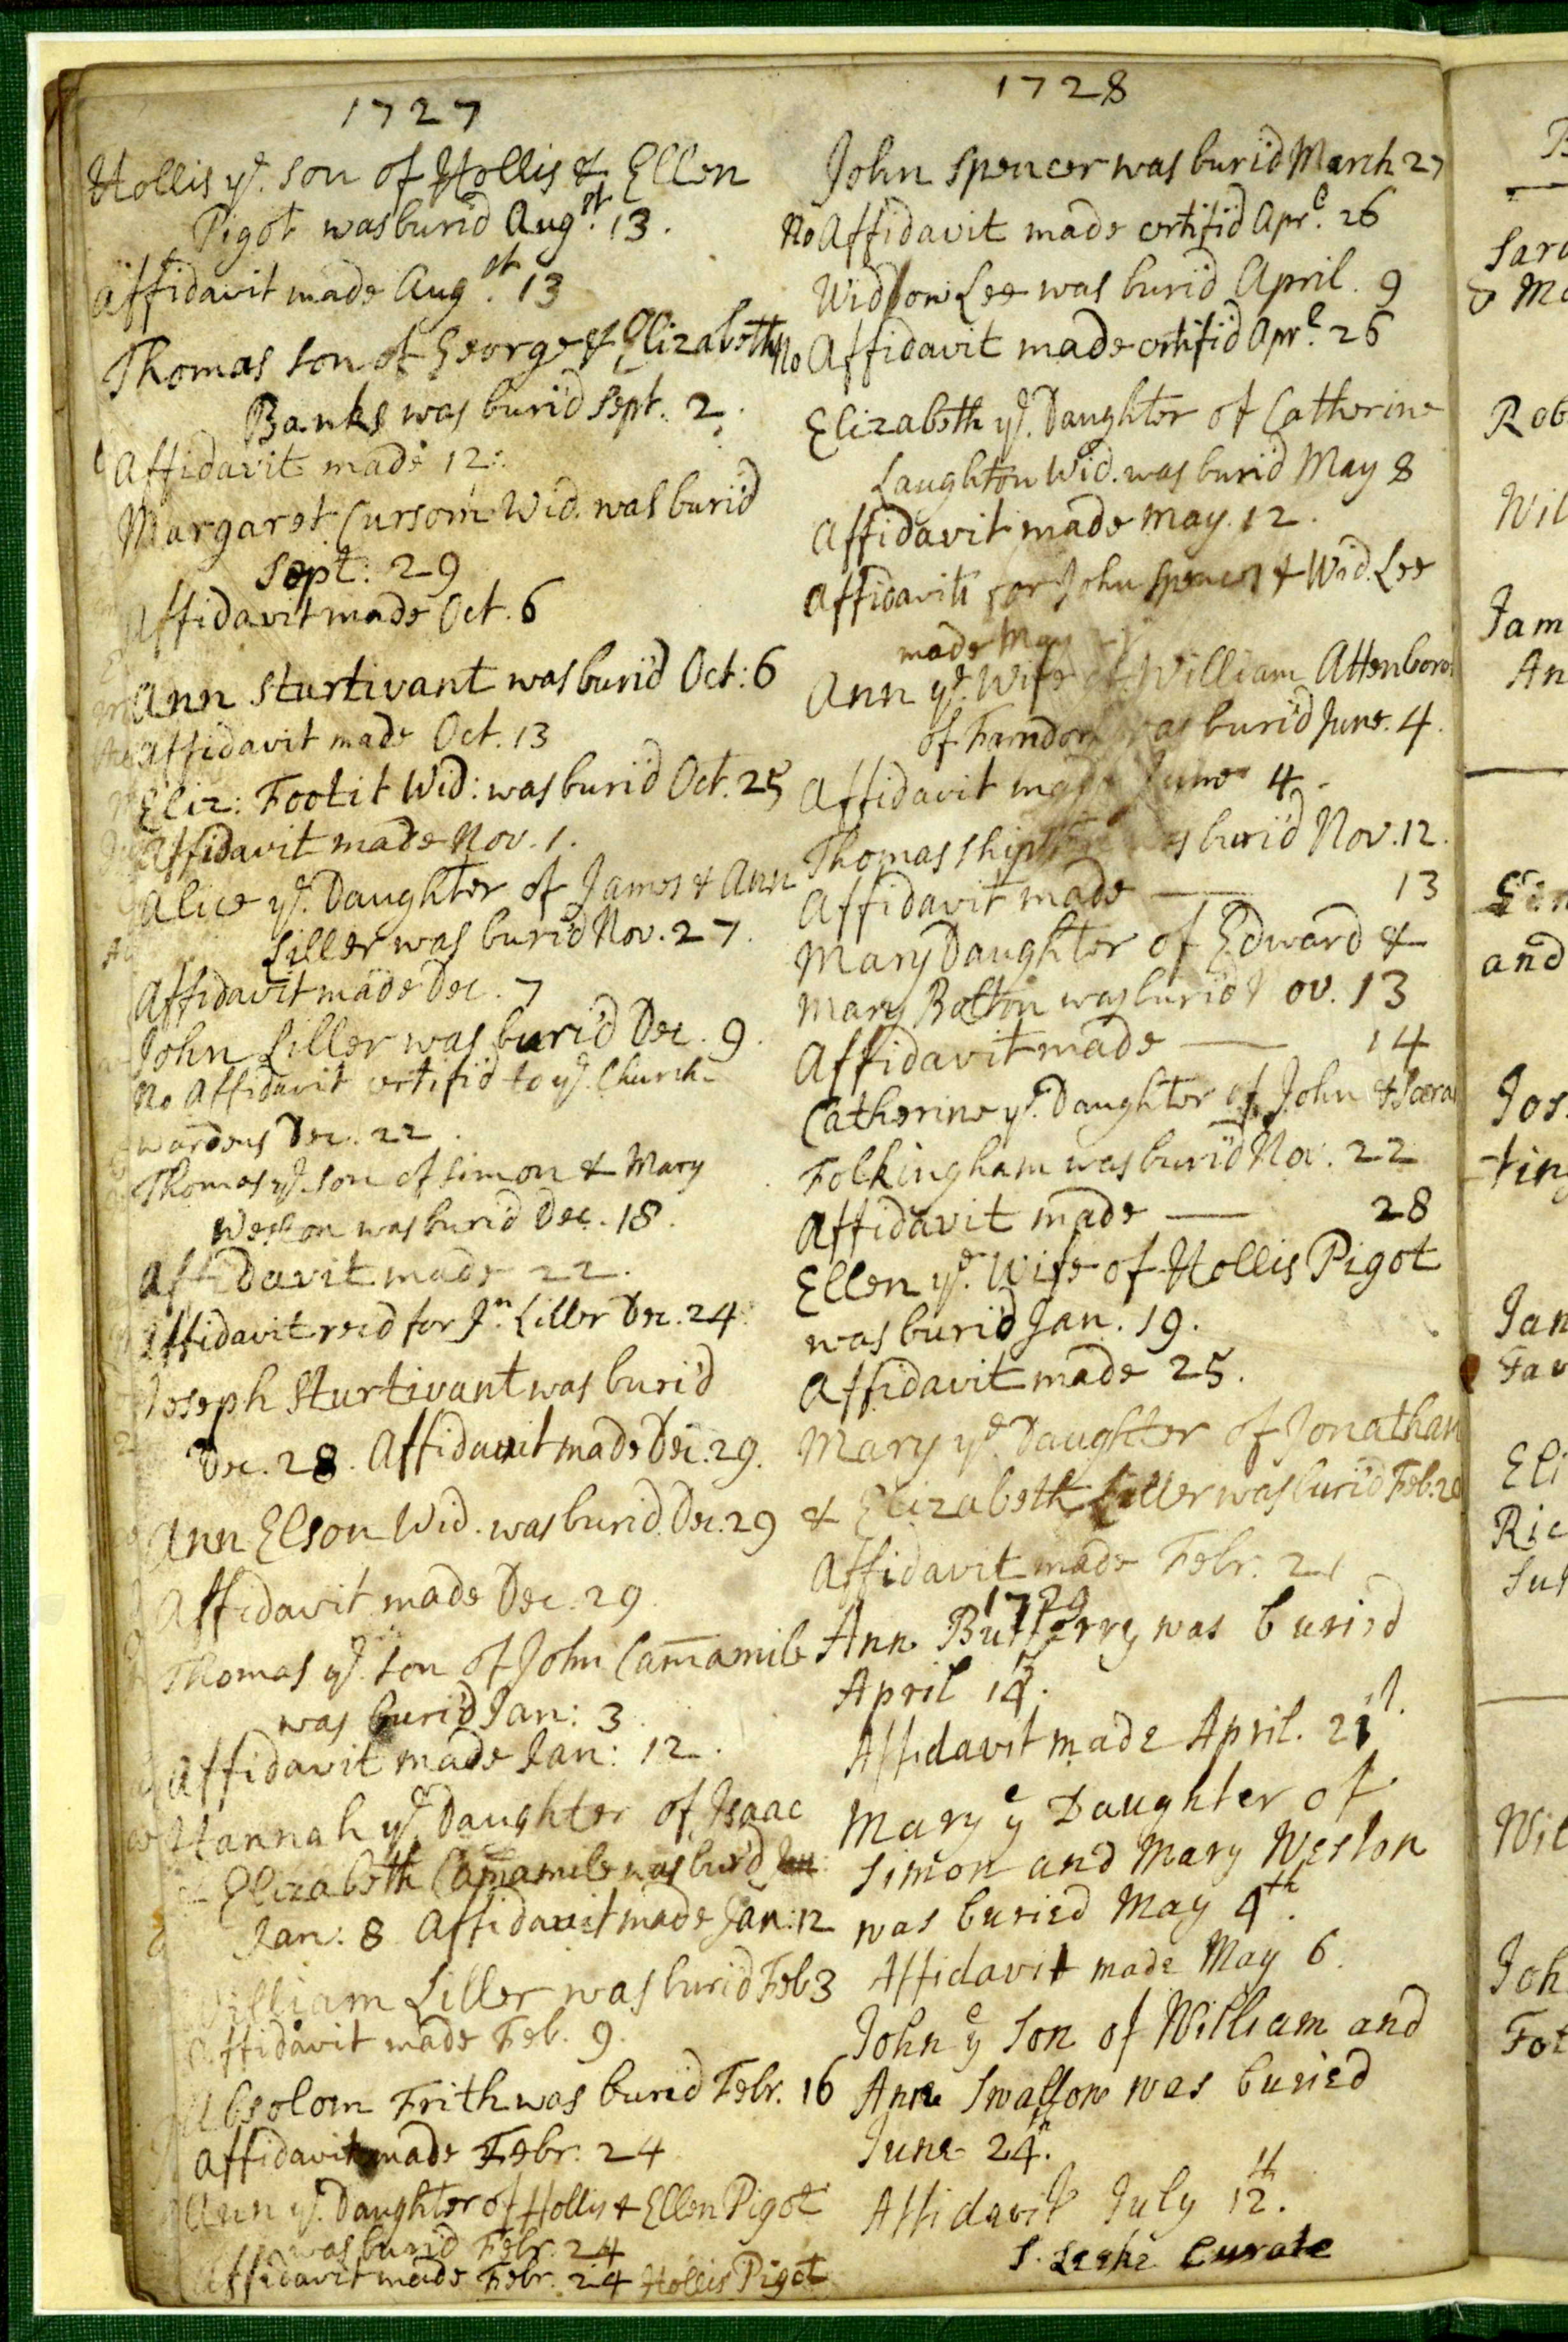 1727
Hollis ye. son of Hollis & Ellen
Pigot was buri'd Augst. 13.
Affidavit made Augst. 13
Thomas son of George & Elizabeth
Banks was buri'd Sept. 2.
Affidavit made 12.
Margaret Cursom Wid. was buri'd
Sept: 29
Affidavit made Oct. 6
Ann Sturtivant was buri'd Oct: 6
Affidavit made Oct. 13
Eliz: Footit Wid: was buri'd Oct. 25
Affidavit made Nov. 1.
Alice ye. Daughter of James & Ann
Liller was buri'd Nov. 27.
Affidavit made Dec. 7
John Liller was buri'd Dec. 9.
No Affidavit certifi'd to ye. Church-
wardens Dec. 22.
Thomas ye. son of Simon & Mary
Weston was buri'd Dec. 18.
Affidavit made 22.
Affidavit rec'd for Jn. Liller Dec. 24.
Joseph Sturtivant was buri'd
Dec. 28. Affidavit made Dec. 29.
Ann Elson Wid. was buri'd. Dec. 29
Affidavit made Dec. 29.
Thomas ye. son of John Camamile
was buri'd Jan: 3.
Affidavit made Jan: 12.
Hannah ye. Daughter of Isaac
& Elizabeth Camamile was buri'd Jan:
Jan: 8 Affidavit made Jan: 12
William Liller was buri'd Feb 3
Affidavit made Feb. 9.
Absolom Frith was buri'd Febr. 16
Affidavit made Febr. 24
Ann ye. Daughter of Hollis & Ellen Pigot
was buri'd Febr. 24
Affidavit made Febr. 24 Hollis Pigot
1728
John Spencer was buri'd March 27
No Affidavit made certifi'd Apre. 26
Widdow Lee was buri'd April. 9
No Affidavit made certifi'd Apre. 26
Elizabeth ye. Daughter of Catherine
Laughton Wid. was buri'd May 8
Affidavit made May. 12.
Affidavits for John Spencer & Wid. Lee
made May
Ann ye. Wife of William Attenboro
of Farndon was buri'd June. 4.
Affidavit made June 4.
Thomas was buri'd Nov. 12.
Affidavit made — 13
Mary Daughter of Edward &
Mary Bolton was buri'd Nov. 13
Affidavit made — 14
Catherine ye. Daughter of John & Sara
Folkingham was buri'd Nov. 22
Affidavit made — 28
Ellen ye. Wife of Hollis Pigot
was buri'd Jan. 19.
Affidavit made 25.
Mary ye. Daughter of Jonathan
& Elizabeth Liller was buri'd Feb. 20
Affidavit made Febr. 21
1729
Ann Butterry was buried
April 14.
Affidavit made April. 21st.
Mary ye Daughter of
Simon and Mary Weston
was buried May 4th.
Affidavit made May 6.
John ye Son of William and
Ann Swallow was buried
June 24th.
Affidavit July 12th.
S. Leeke Curate
Sara
& Ma
Rob
Wil
Jam
An
and
Jos
Jan
Eli
Ric
Wil
Joh